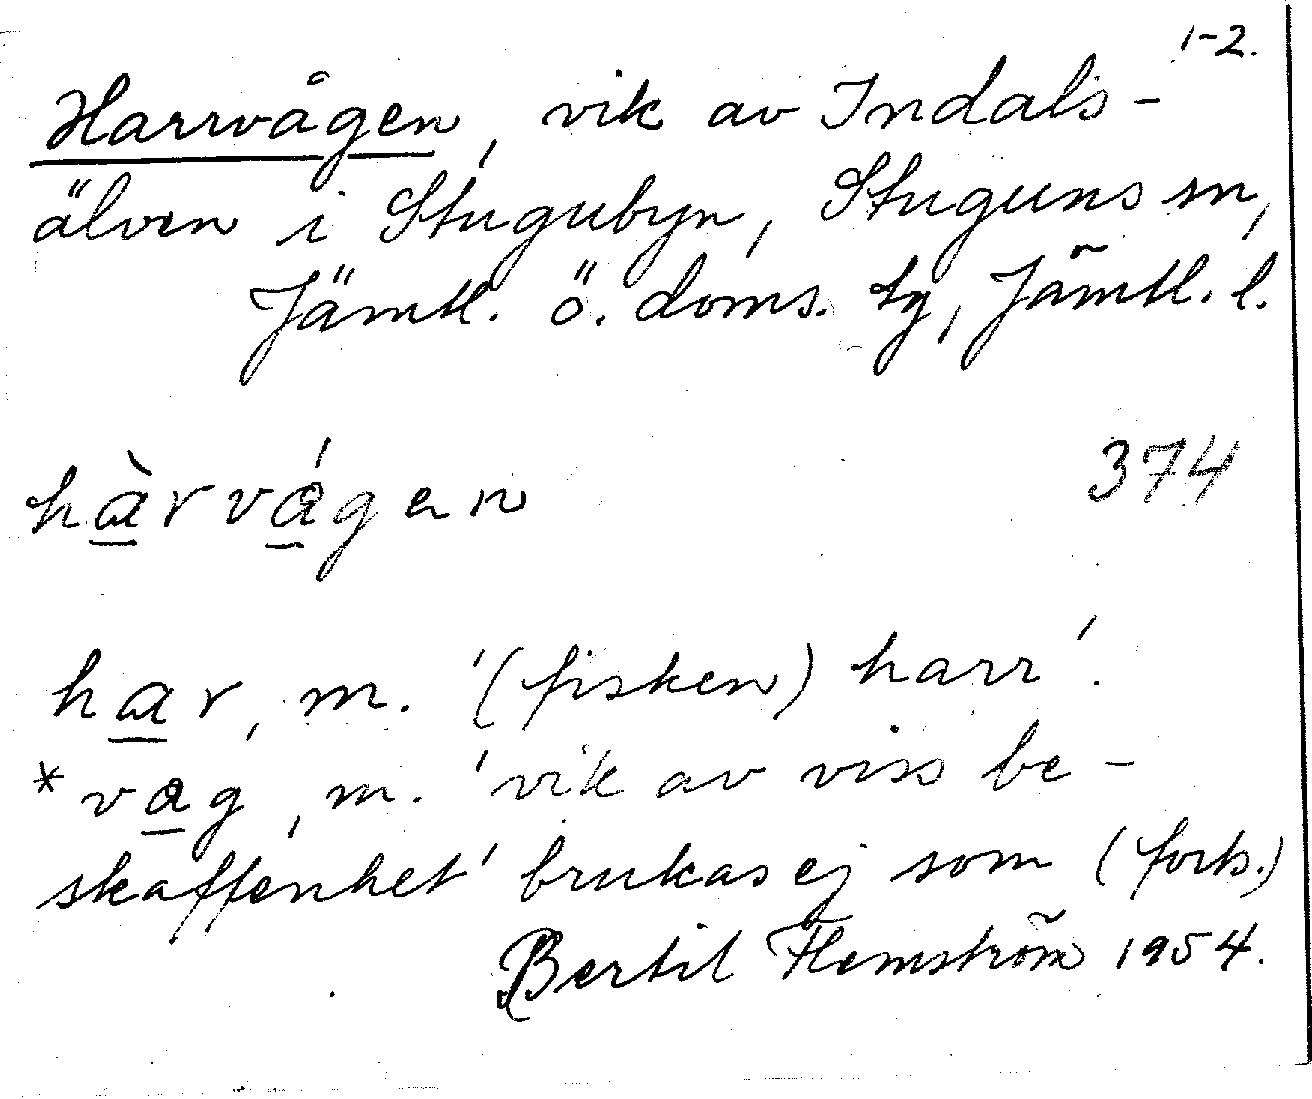 1-2.
Harrvågen, vik av Indals-
älven i Stugubyn, Stuguns sn,
Jämtl. ö. doms. tg, Jämtl. l.
hàrvágen
374
har, m. '(fisken) harr'.
*vag, m. 'vik av viss be-
skaffenhet' brukas ej som (forts.)
Bertil Flemström 1954.